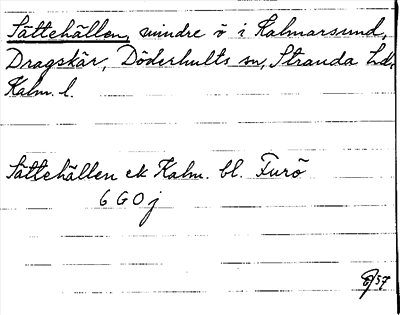 Sättehällen, mindre ö i Kalmarsund,
Dragskär, Döderhults sn, Stranda hd,
Kalm. l.
Sättehällen ek Kalm. bl. Furö
6 G 0 j